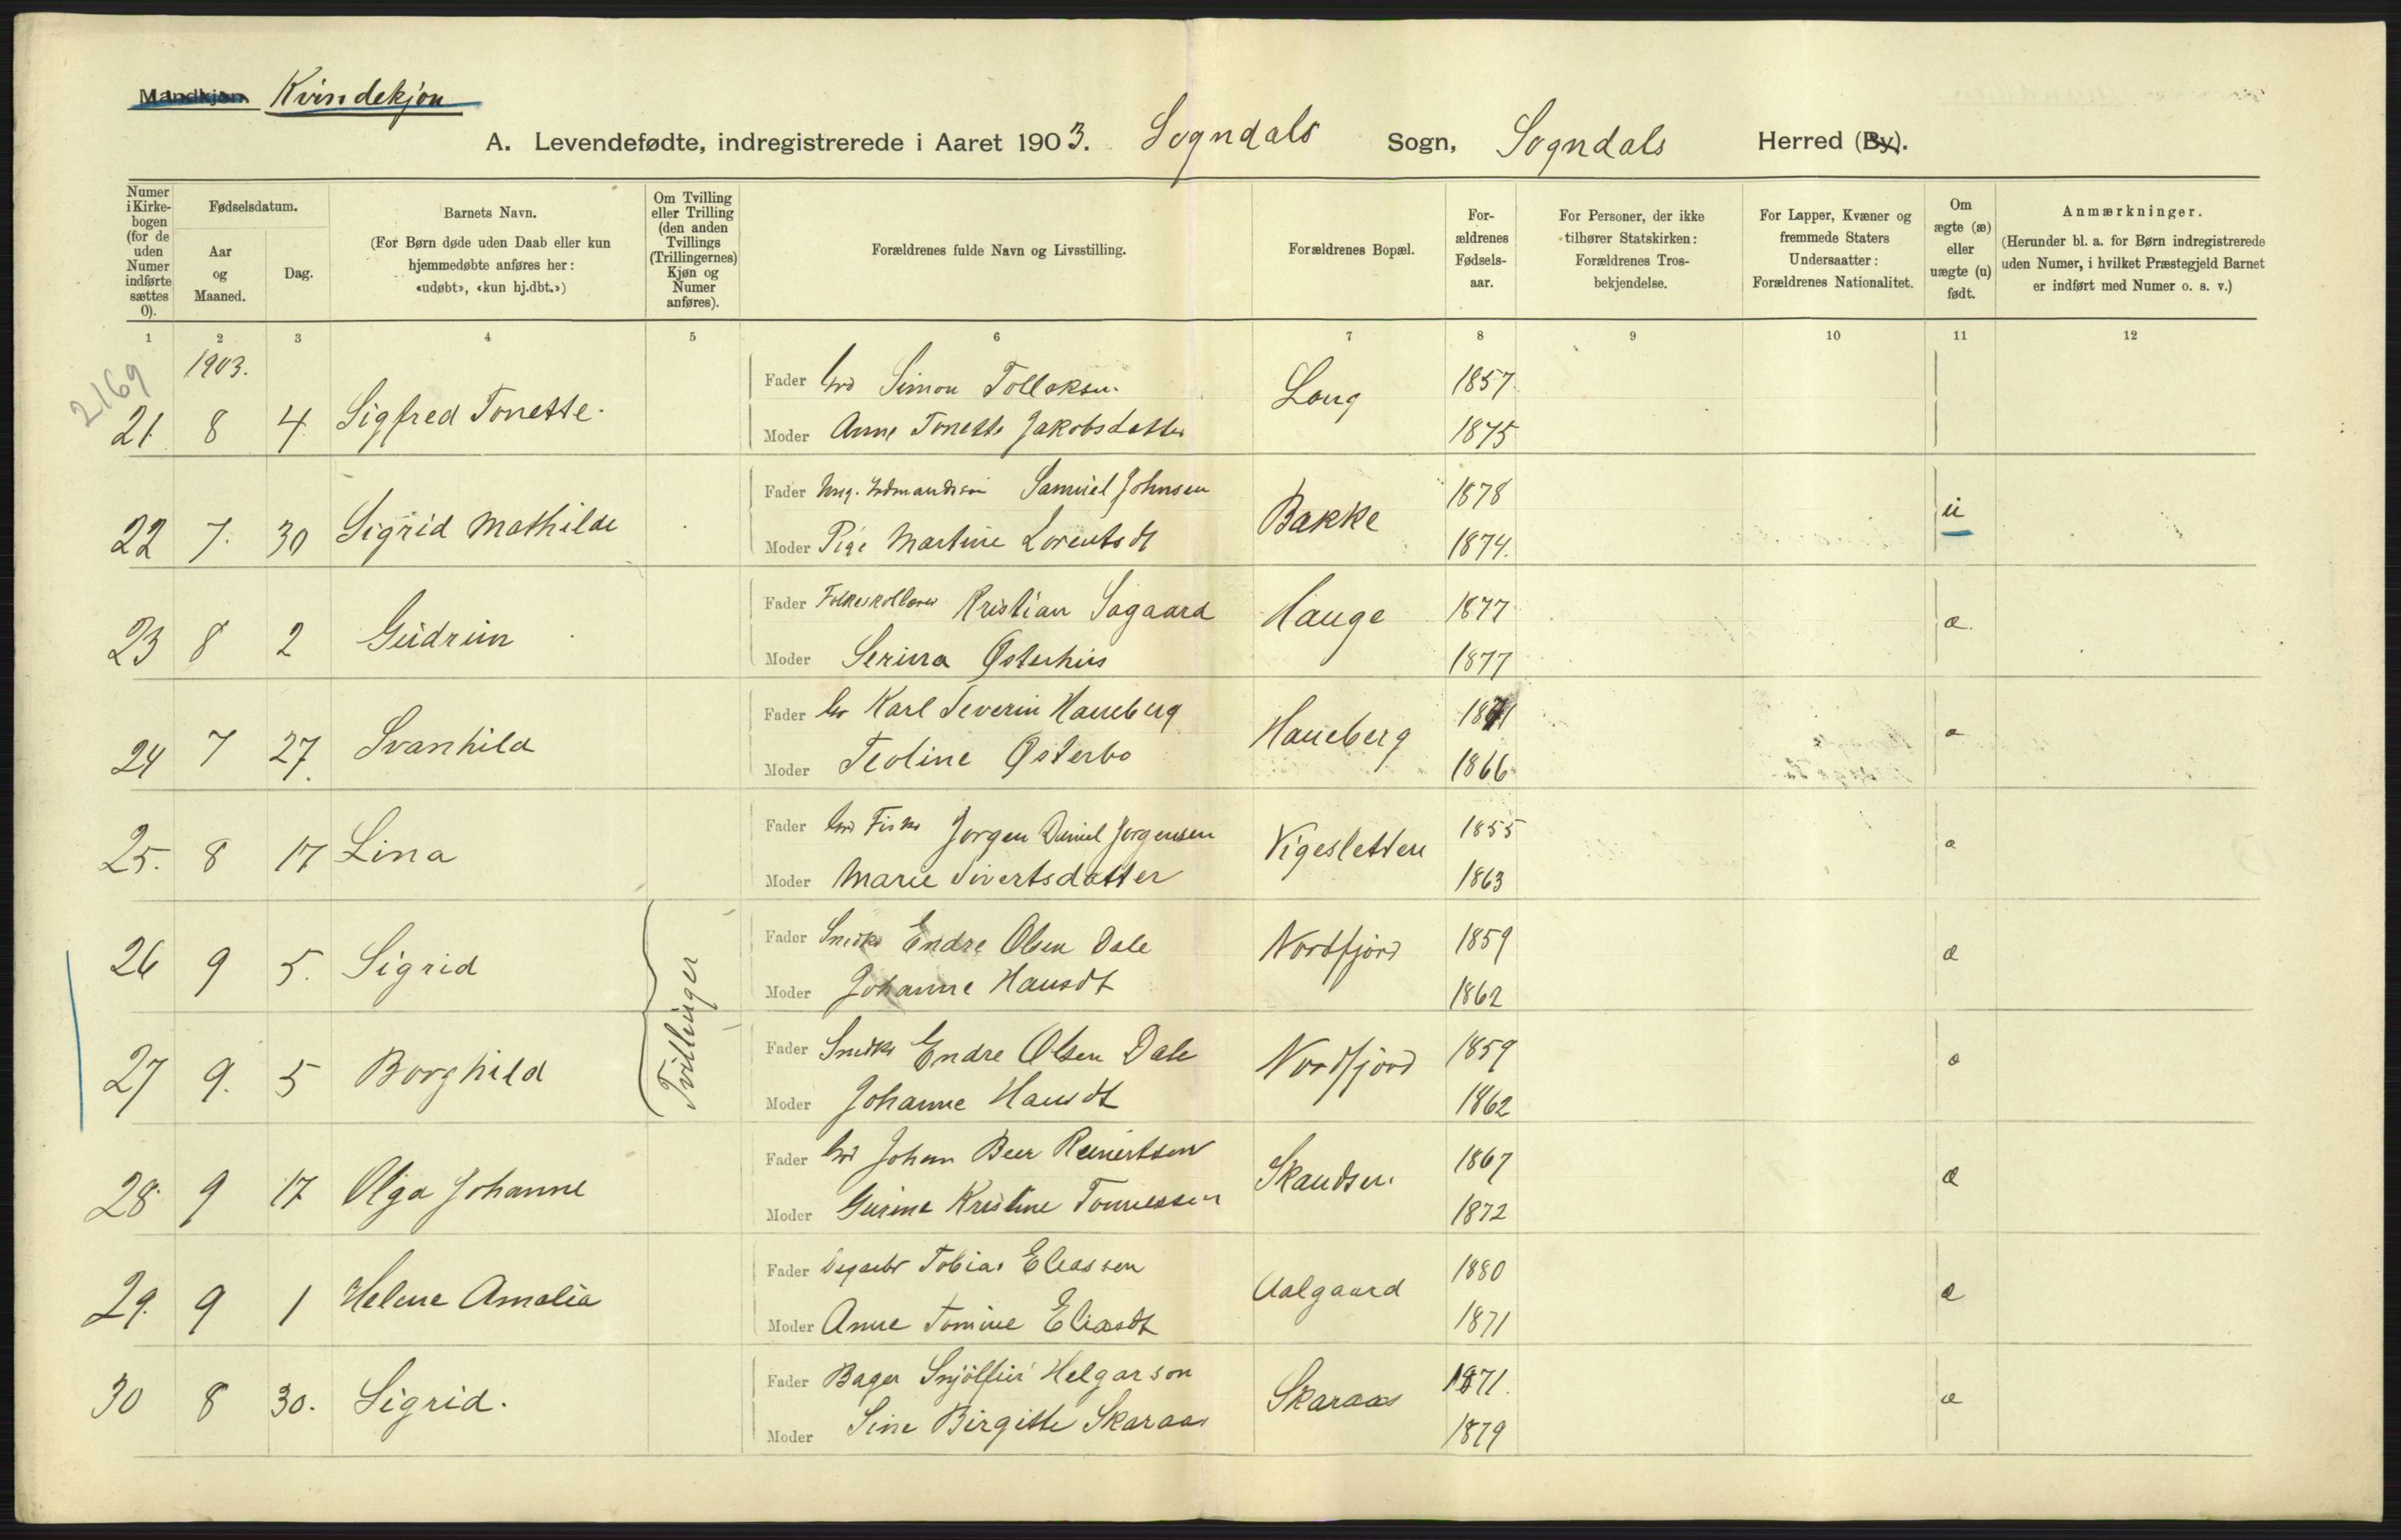 Mandkjøn Kvindekjøn
A. Levendefødte, indregistrerede i Aaret 1903. Sogndals Sogn, Sogndals Herred (By).
Numer i Kirkebogen (for de uden Numer indførte sættes 0).
Fødselsdatum.
Aar og Maaned.
Dag.
Barnets Navn.
(For Børn døde uden Daab eller kun hjemmedøbte anføres her: «udøbt», «kun hj.dbt.»)
Om Tvilling eller Trilling (den anden Tvillings (Trillingernes) Kjøn og Numer anføres).
Forældrenes fulde Navn og Livsstilling.
Forældrenes Bopæl.
Forældrenes Fødselsaar.
For Personer, der ikke tilhører Statskirken: Forældrenes Trosbekjendelse.
For Lapper, Kvæner og fremmede Staters Undersaatter: Forældrenes Nationalitet.
Om ægte (æ) eller uægte (u) født.
Anmærkninger.
(Herunder bl. a. for Børn indregistrerede uden Numer, i hvilket Præstegjeld Barnet er indført med Numer o. s. v.)
1 2 3 4 5 6 7 8 9 10 11 12
2169
1903.
21 8 4 Sigfred Tonette. Fader Simon Tollaksen. Log 1857
Moder Anne Tonette Jakobsdatter 1875
22 7. 30 Sigrid Mathilde Fader Ung. Samuel Johnsen Bakke 1878 u
Moder Pige Martine Lorentsdt 1874.
23 8 2 Gudrun Fader Folkeskollærer Kristian Sagaard Hauge 1877 æ
Moder Serina Østerhus 1877
24 7 27. Svanhild Fader Karl Severin Haneberg Haneberg 1871 æ
Moder Teoline Østerbø 1866
25. 8 17 Lina Fader Jørgen Daniel Jørgensen Vigesletten 1855 æ
Moder Marie Sivertsdatter 1863
Tvillinger
26 9 5. Sigrid Fader Snedk Endre Olsen Dale Nordfjord 1859 æ
Moder Johanne Hansdt 1862
27 9. 5 Borghild Fader Snedk Endre Olsen Dale Nordfjord 1859 æ
Moder Johanne Hansdt 1862
28 9 17 Olga Johanne Fader Johan Beer Reinertsen Skandsen. 1867 æ
Moder Gurine Kristine Tønnessen 1872
29. 9 1 Helene Amalia Fader Tobias Eliassen Aalgaard 1880 æ
Moder Anne Tomine Eliasdt 1871
30 8 30. Sigrid. Fader Bager Snjólfur Helgarson Skaraas 1871. æ
Moder Sine Birgitte Skaraas 1879